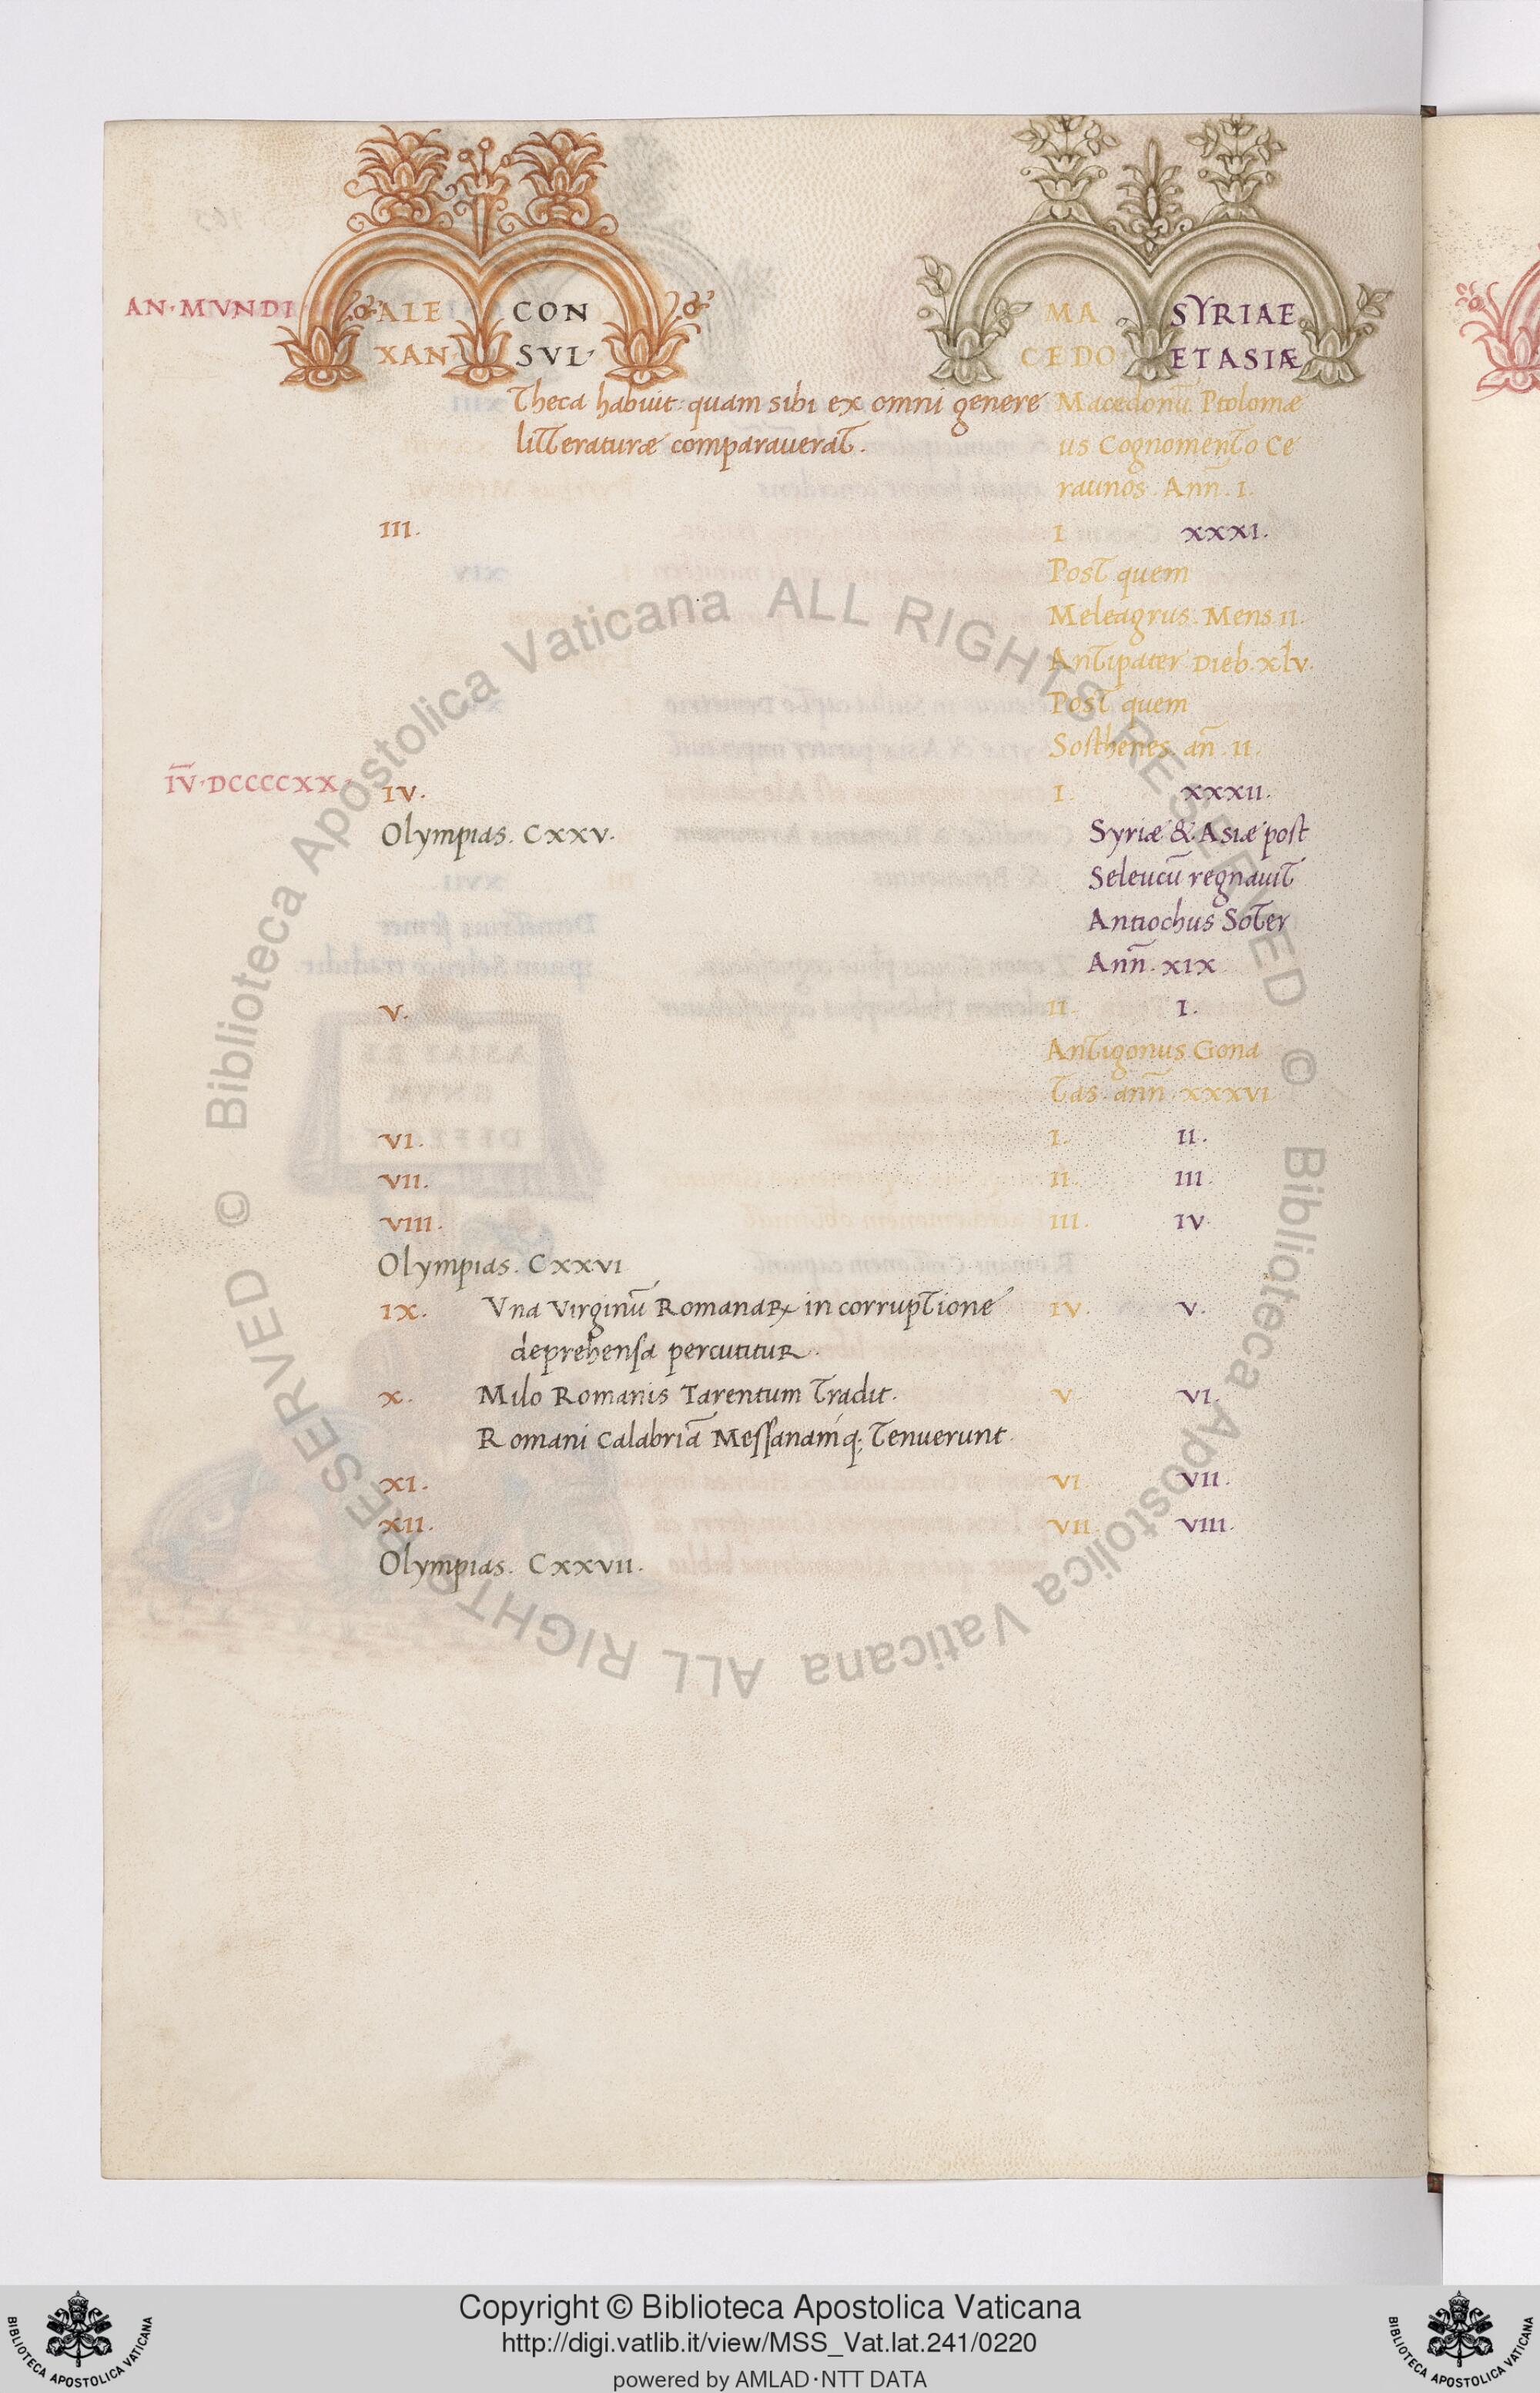 AN · MVNDI ALE CON MA SYRIAE
XAN SVL· CEDO ETASIÆ
Theca habuit quam sibi ex omni genere Macedonū Ptolomæ
litteraturæ comparauerat. us Cognomento Ce
raunos. Ann̄. I.
III. I XXXI.
Post quem
Meleagrus. Mens. II.
Antipater Dieb. xlv.
Post quem
Sosthenes. an̄. II.
I̅V̅ · DCCCCXX. IV. I. XXXII.
Olympias. CXXV. Syriæ & Asiæ post
Seleucū regnauit
Antiochus Soter
Ann̄. XIX
V. II. I.
Antigonus. Gona
tas. ann̄. XXXVI
VI. I. II.
VII. II. III.
VIII. III. IV.
Olympias. CXXVI
IX. Vna Virginū Romanaꝝ in corruptione IV. V.
deprehensa percutitur.
X. Milo Romanis Tarentum tradit. V. VI.
Romani Calabriā Messanamq; tenuerunt.
XI. VI. VII.
XII. VII. VIII.
Olympias. CXXVII.
© Biblioteca Apostolica Vaticana ALL RIGHTS RESERVED © Biblioteca Apostolica Vaticana ALL RIGHTS RESERVED
BIBLIOTECA APOSTOLICA VATICANA
Copyright © Biblioteca Apostolica Vaticana
http://digi.vatlib.it/view/MSS_Vat.lat.241/0220
powered by AMLAD·NTT DATA
BIBLIOTECA APOSTOLICA VATICANA